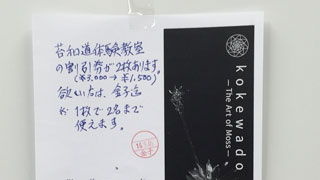 苔和道体験教室
の割引券が2枚あります。
(¥3,000→¥1,500)
欲しい方は、金子迄
※1枚で2名まで
使えます。
kokewado
—The Art of Moss—